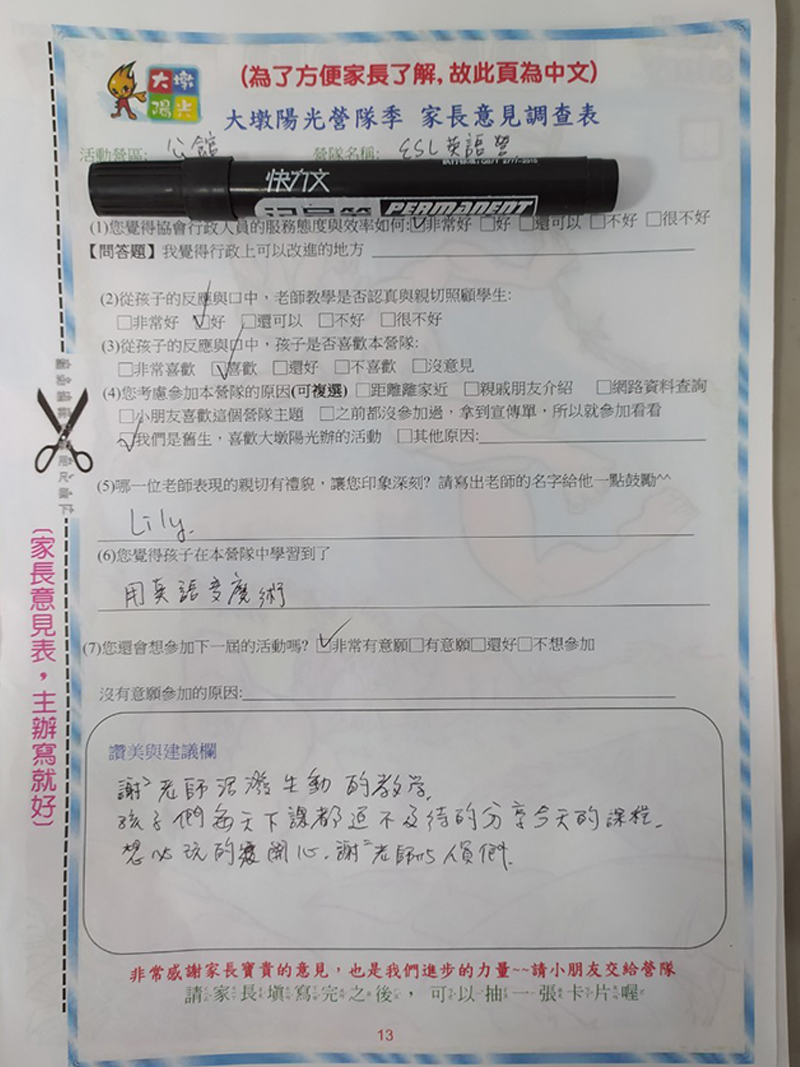 大墩
陽光
(為了方便家長了解,故此頁為中文)
大墩陽光營隊季 家長意見調查表
活動營區: 公館 營隊名稱: ESL英語營
快力文
PERMANENT
(1)您覺得協會行政人員的服務態度與效率如何:☑非常好 □好 □還可以 □不好 □很不好
【問答題】我覺得行政上可以改進的地方
(2)從孩子的反應與口中，老師教學是否認真與親切照顧學生:
□非常好 ☑好 □還可以 □不好 □很不好
(3)從孩子的反應與口中，孩子是否喜歡本營隊:
□非常喜歡 ☑喜歡 □還好 □不喜歡 □沒意見
(4)您考慮參加本營隊的原因(可複選) □距離離家近 □親戚朋友介紹 □網路資料查詢
□小朋友喜歡這個營隊主題 □之前都沒參加過，拿到宣傳單，所以就參加看看
☑我們是舊生，喜歡大墩陽光辦的活動 □其他原因:
(5)哪一位老師表現的親切有禮貌，讓您印象深刻? 請寫出老師的名字給他一點鼓勵^^
Lily.
(6)您覺得孩子在本營隊中學習到了
用英語變魔術
(7)您還會想參加下一屆的活動嗎? ☑非常有意願□有意願□還好□不想參加
沒有意願參加的原因:
(家長意見表，主辦寫就好)
讚美與建議欄
謝=老師活潑生動的教學.
孩子們每天下課都迫不及待的分享今天的課程.
想必玩的很開心.謝=老師 人員們.
非常感謝家長寶貴的意見，也是我們進步的力量~~請小朋友交給營隊
請家長填寫完之後，可以抽一張卡片喔
13